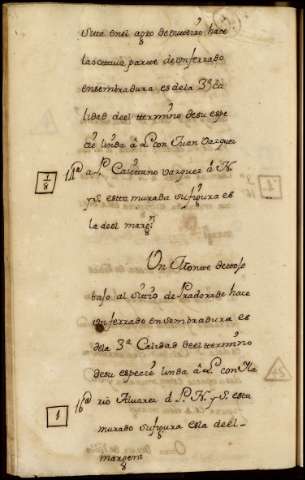 Sitta en el agro de
la octava parte de un ferrado
en sembradura es de la 3ª Ca
lidad del termino de su espe
cie linda a L. con Juan Vazquez
1/8
14ª a P. Caietano Vazquez d. N.
y S. esta murada su figura es
la del margⁿ
Un Monte de tojo
bajo al Sitio de Pradorado hace
un ferrado en sembradura es
de la 3ª Calidad del termino
de su especie linda a L. con Ma
1
16ª rio Alvarez d. P. N. y S. esta
murado su figura es la del
margen